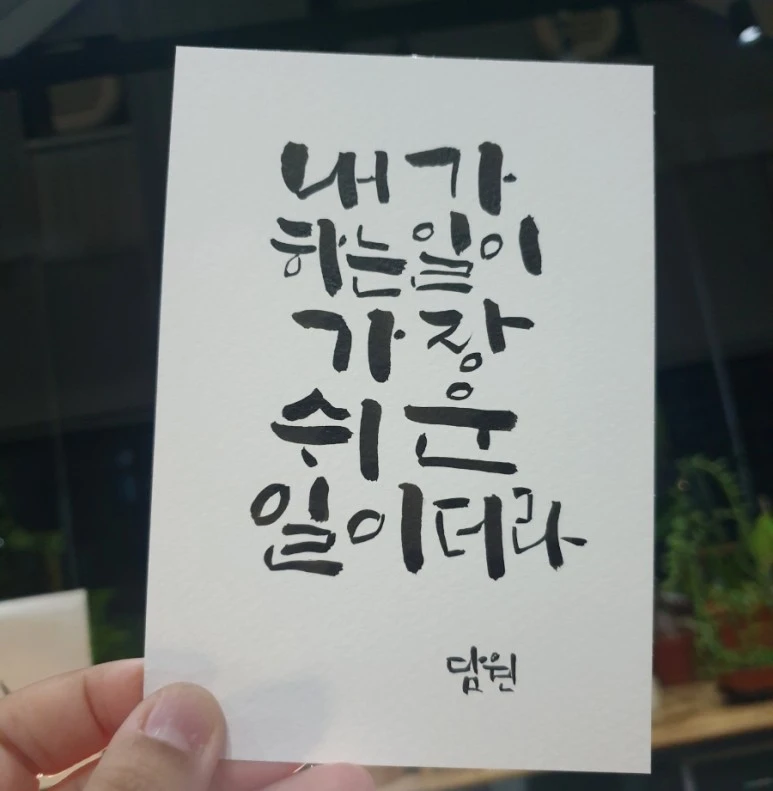 내가
하는일이
가장
쉬운
일이더라
담원